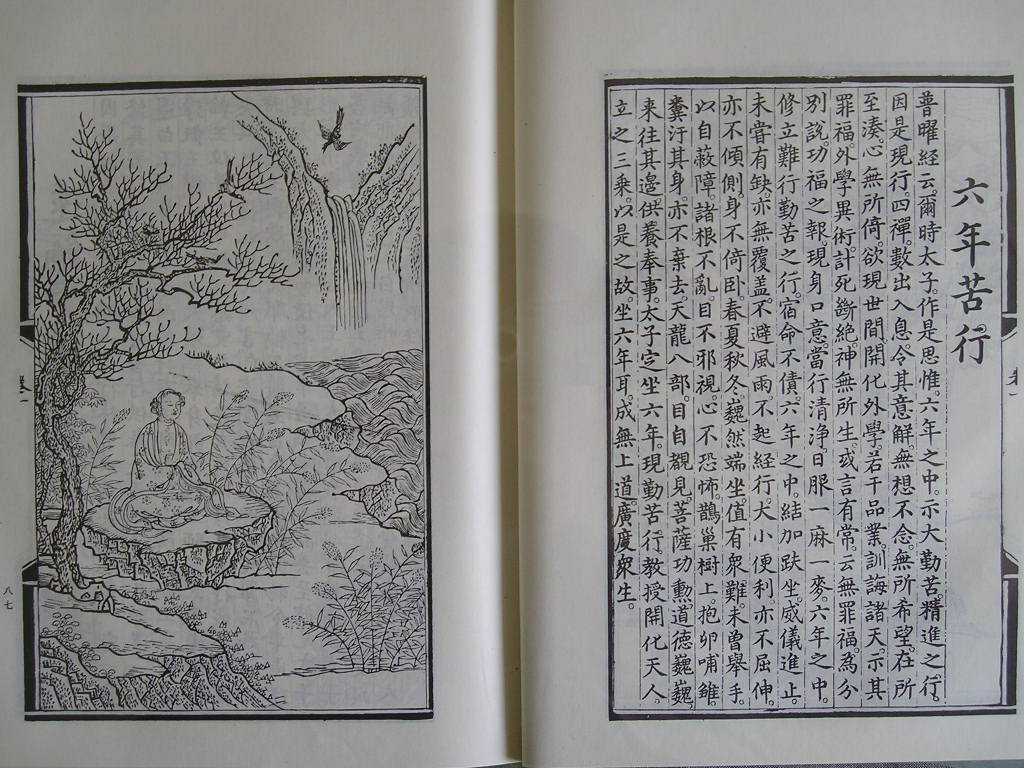 六年苦行
普曜經云。爾時太子。作是思惟。六年之中。示大勤苦。精進之行。
因是現行。四禪。數出入息。令其意解。無想不念。無所希望。在所
至湊。心無所倚。欲現世間。開化外學。若干品業。訓誨諸天。示其
罪福。外學異術。計死斷絕。神無所生。或言有常。云無罪福。為分
別說。功福之報。現身口意。當行清淨。日服一麻一麥。六年之中。
修立難行。勤苦之行。宿命不債。六年之中。結加趺坐。威儀進止。
未嘗有缺。亦無覆蓋。不避風雨。不起經行。大小便利。亦不屈伸。
亦不傾側。身不倚臥。春夏秋冬。巍然端坐。值有眾難。未曾舉手。
以自蔽障。諸根不亂。目不邪視。心不恐怖。鵲巢樹上。抱卵哺雛。
糞汙其身。亦不棄去。天龍八部。目自覩見。菩薩功勳。道德巍巍。
來往其邊。供養奉事。太子定坐六年。現勤苦行。教授開化天人。
立之三乘。以是之故。坐六年耳。成無上道。廣度眾生。
八七